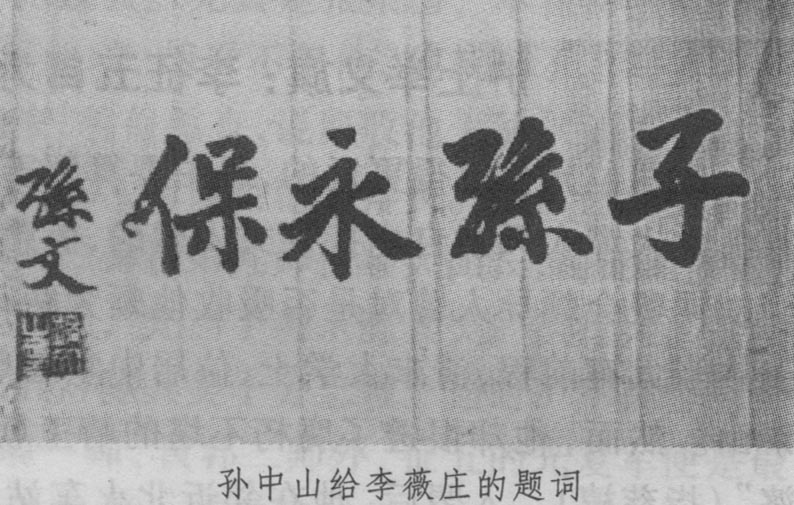 子孫永保
孫文
孙中山给李薇庄的题词